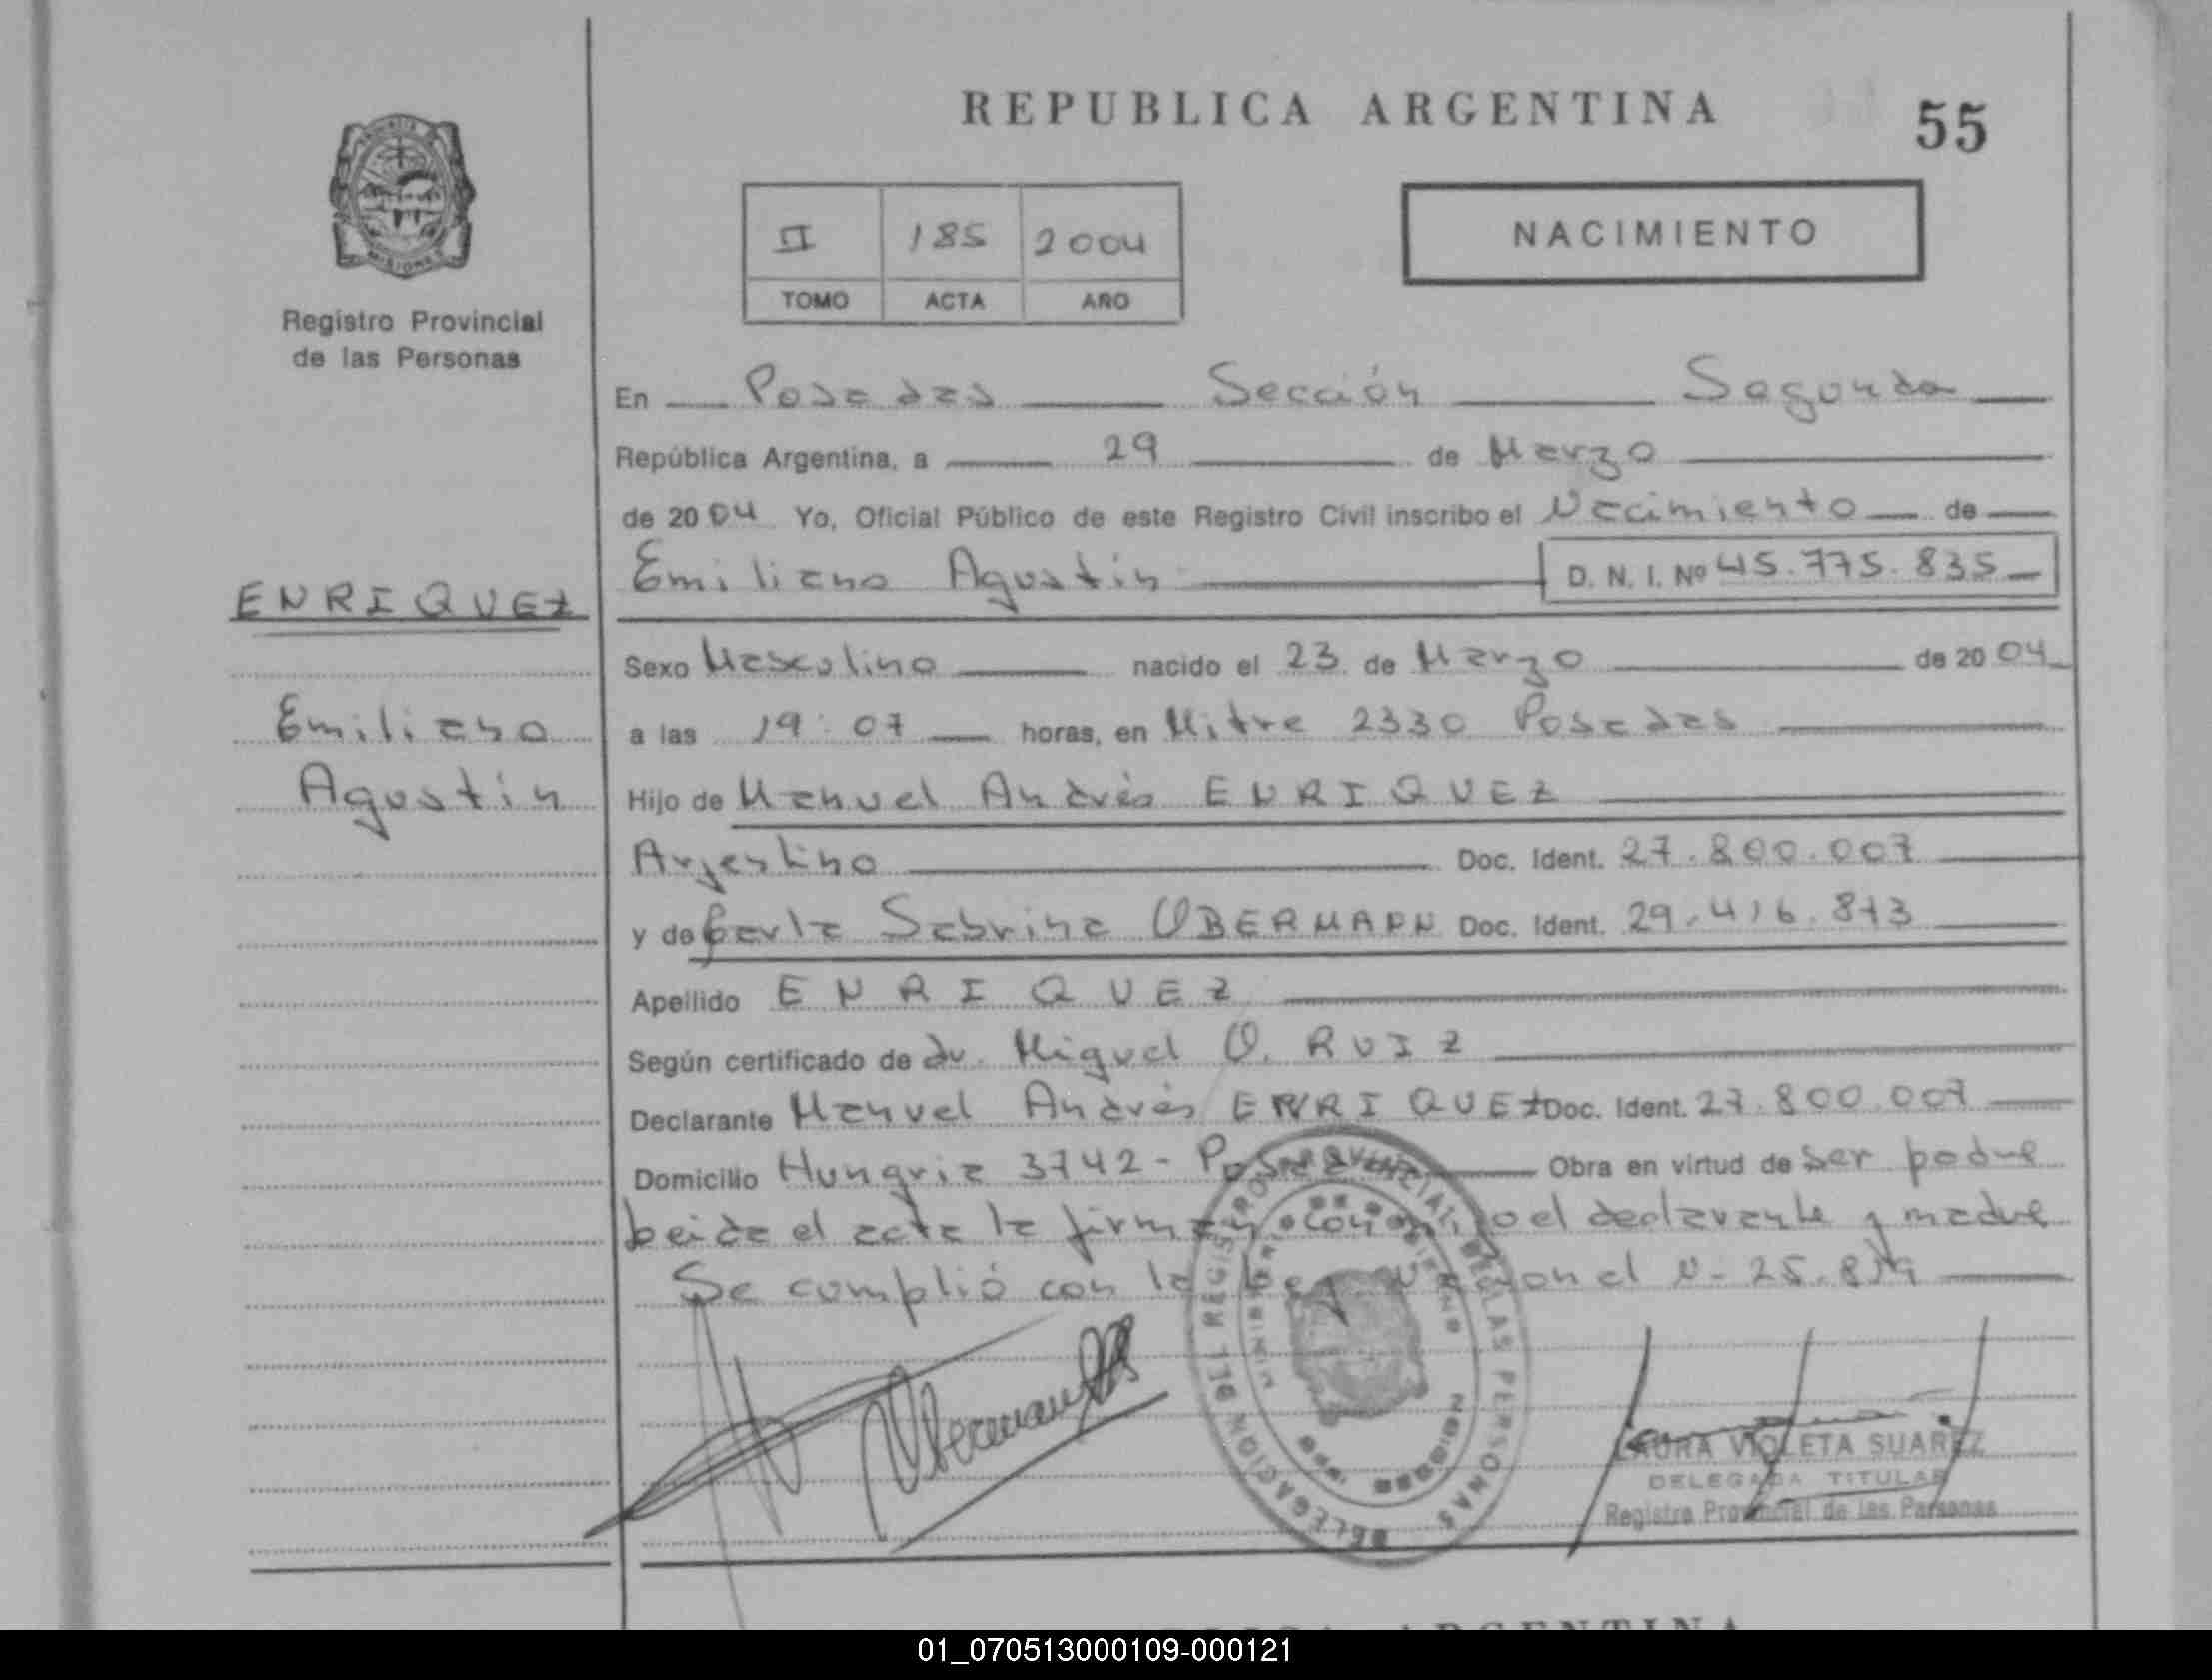 REPUBLICA ARGENTINA
55
II 185 2004
TOMO ACTA AÑO
NACIMIENTO
MISIONES
Registro Provincial
de las Personas
En Posadas Sección Segunda
República Argentina, a 29 de Marzo
de 2004 Yo, Oficial Público de este Registro Civil inscribo el Nacimiento de
Emiliano Agustín D. N. I. Nº 45.775.835
ENRIQUEZ
Emiliano
Agustín
Sexo Masculino nacido el 23 de Marzo de 2004
a las 19:07 horas, en Mitre 2330 Posadas
Hijo de Manuel Andrés ENRIQUEZ
Argentino Doc. Ident. 27.800.007
y de Carla Sabrina OBERMANN Doc. Ident. 29.416.873
Apellido ENRIQUEZ
Según certificado de dr. Miguel O. RUIZ
Declarante Manuel Andrés ENRIQUEZ Doc. Ident. 27.800.007
Domicilio Hungria 3742 - Posadas Obra en virtud de ser padre
Leida el acta la firman conmigo el declarante y madre
Se cumplió con la Ley Nacional N- 25.819
REGISTRO PROVINCIAL DE LAS PERSONAS
DELEGACION
LAURA VIOLETA SUAREZ
DELEGADA TITULAR
Registro Provincial de las Personas
ARGENTINA
01_070513000109-000121